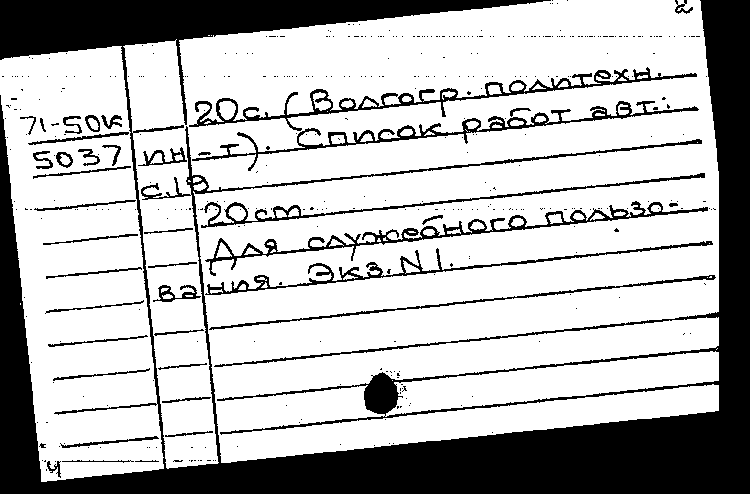 2
71-50к 20с. (Волгогр. политехн.
5037 ин-т). Список работ авт.:
с.19.
20см.
Для служебного пользо-
вания. Экз. N1.
4